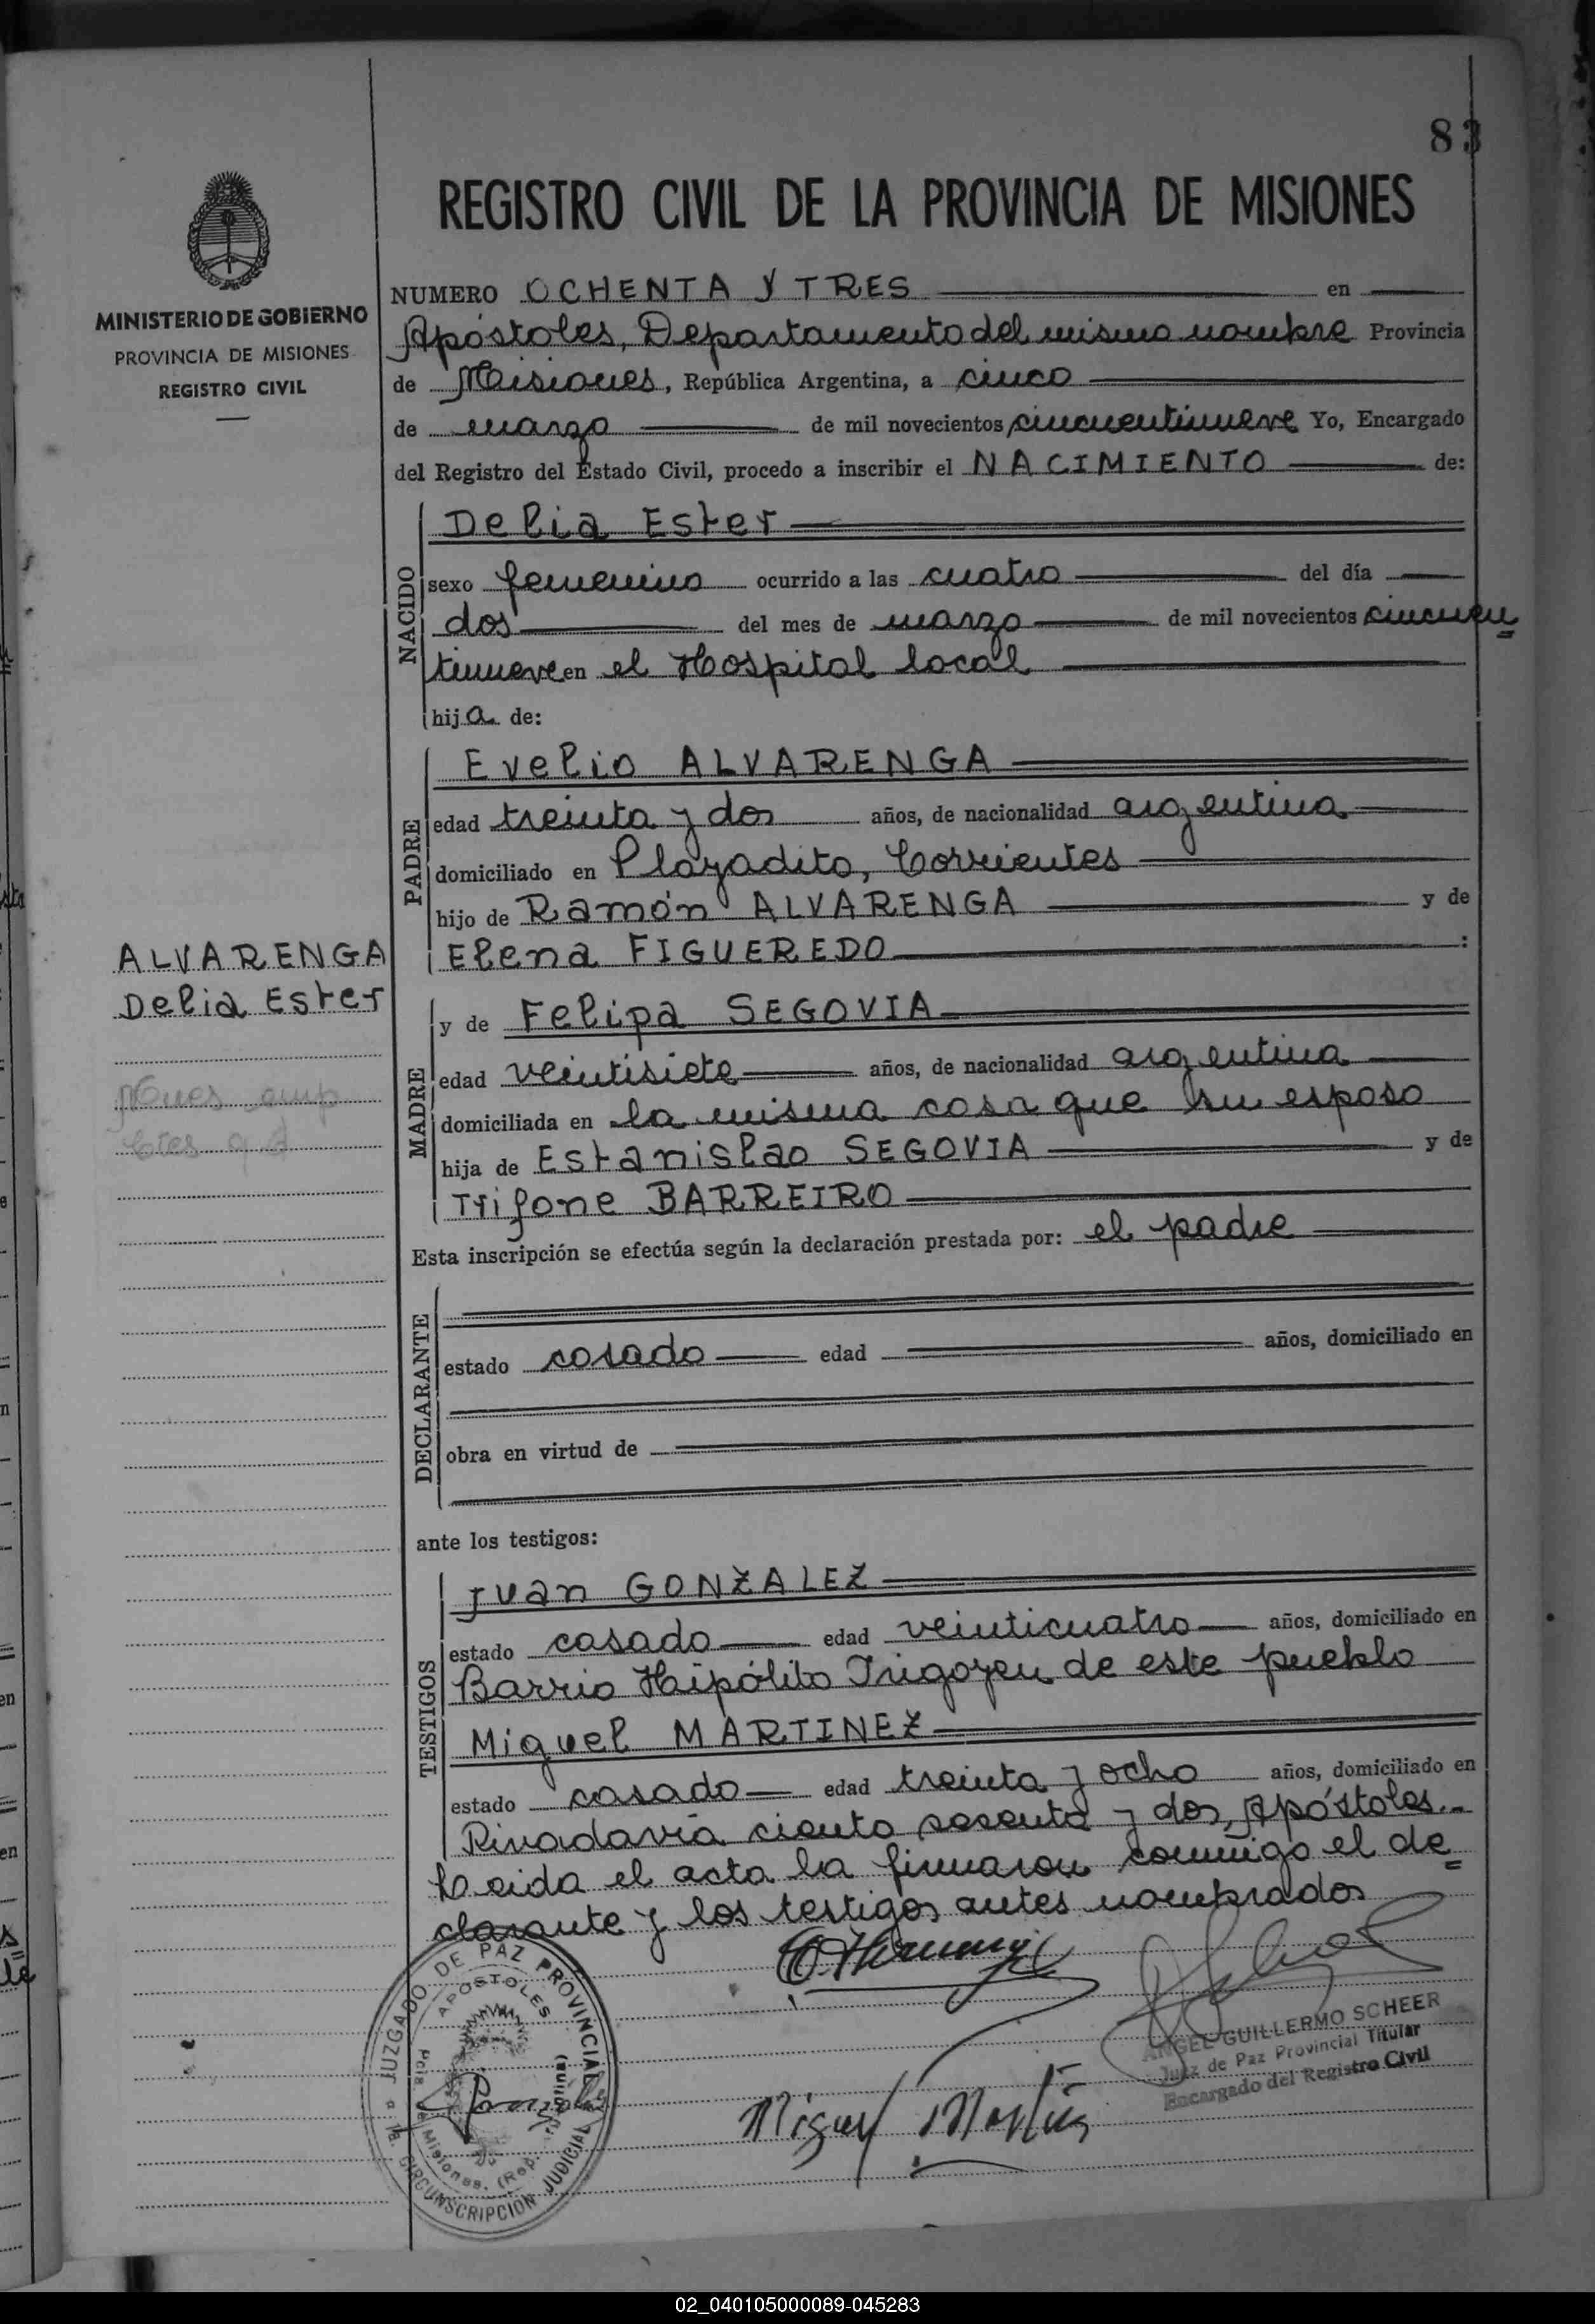 83
REGISTRO CIVIL DE LA PROVINCIA DE MISIONES
MINISTERIO DE GOBIERNO
PROVINCIA DE MISIONES
REGISTRO CIVIL
NUMERO OCHENTA Y TRES en
Apóstoles, Departamento del mismo nombre Provincia
de Misiones, República Argentina, a cinco
de marzo de mil novecientos cincuentinueve Yo, Encargado
del Registro del Estado Civil, procedo a inscribir el NACIMIENTO de:
NACIDO
Delia Ester
sexo femenino ocurrido a las cuatro del día
dos del mes de marzo de mil novecientos cincuen=
tinueve en el Hospital local
hija de:
PADRE
Evelio ALVARENGA
edad treinta y dos años, de nacionalidad argentina
domiciliado en Playadito, Corrientes
hijo de Ramón ALVARENGA y de
Elena FIGUEREDO :
ALVARENGA
Delia Ester
MADRE
y de Felipa SEGOVIA
edad veintisiete años, de nacionalidad argentina
domiciliada en la misma casa que su esposo
hija de Estanislao SEGOVIA y de
Trifone BARREIRO
Esta inscripción se efectúa según la declaración prestada por: el padre
DECLARANTE
estado casado edad años, domiciliado en
obra en virtud de
ante los testigos:
TESTIGOS
Juan GONZALEZ
estado casado edad veinticuatro años, domiciliado en
Barrio Hipólito Irigoyen de este pueblo
Miguel MARTINEZ
estado casado edad treinta y ocho años, domiciliado en
Rivadavia ciento sesenta y dos, Apóstoles.-
Leida el acta la firmaron conmigo el de=
clarante y los testigos antes nombrados
JUZGADO DE PAZ PROVINCIAL
APOSTOLES
1a. CIRCUNSCRIPCIÓN JUDICIAL
ANGEL GUILLERMO SCHEER
Juez de Paz Provincial Titular
Encargado del Registro Civil
Miguel Martinez
02_040105000089-045283